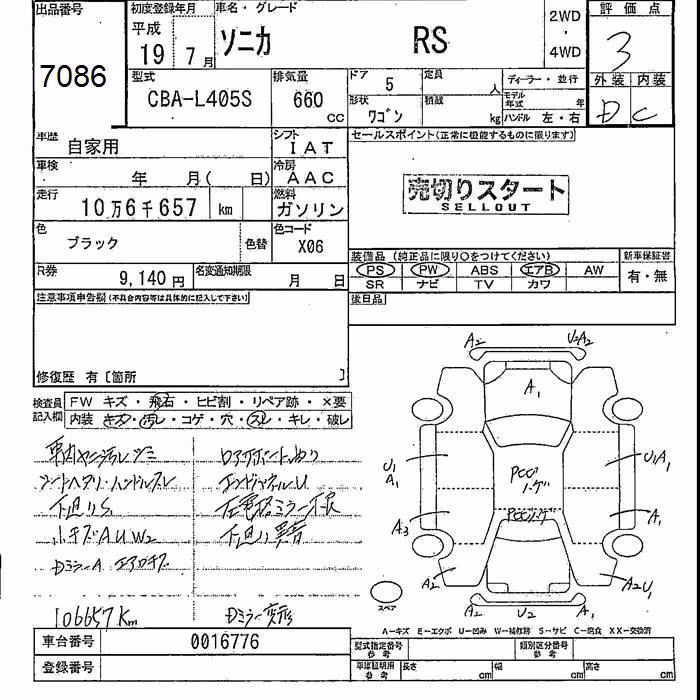 出品番号
7086
初度登録年月
平成
19 7月
車名・グレード
ソニカ RS
2WD
・
4WD
評価点
3
外装 内装
D C
型式
CBA-L405S
排気量
660
cc
ドア 5
定員 人
形状 ワゴン
積載 kg
ディーラー・並行
モデル年式 年
ハンドル 左・右
車歴
自家用
シフト
IAT
車検
年 月( 日)
冷房
AAC
走行
10万6千657 km
燃料
ガソリン
色
ブラック
色替
色コード
X06
R券
9,140円
名変通知期限
月 日
セールスポイント(正常に機能するものに限ります)
売切りスタート
SELLOUT
装備品(純正品に限り○をつけてください)
PS PW ABS エアB AW
SR ナビ TV カワ
新車保証書
有・無
後日品
注意事項申告欄(不具合内容等は具体的に記入して下さい)
修復歴 有〔箇所 〕
検査員記入欄
FW キズ・飛石・ヒビ割・リペア跡・×要
内装 キズ・汚レ・コゲ・穴・スレ・キレ・破レ
シートヘタリ・ハンドルスレ
下廻りS
小キズAUW2
DミラーA エアロキズ
106657Km
下廻り異音
Dミラー変形
A2 U2A2
A1
U1 A1
U1A1
A3
A1
A2
A2U1
A2 U2 A1
スペア
A-キズ E-エクボ U-凹み W-補修跡 S-サビ C-腐食 XX-交換済
車台番号
0016776
登録番号
型式指定番号
参考
類別区分番号
参考
車庫証明用
参考
長さ cm
幅 cm
高さ cm